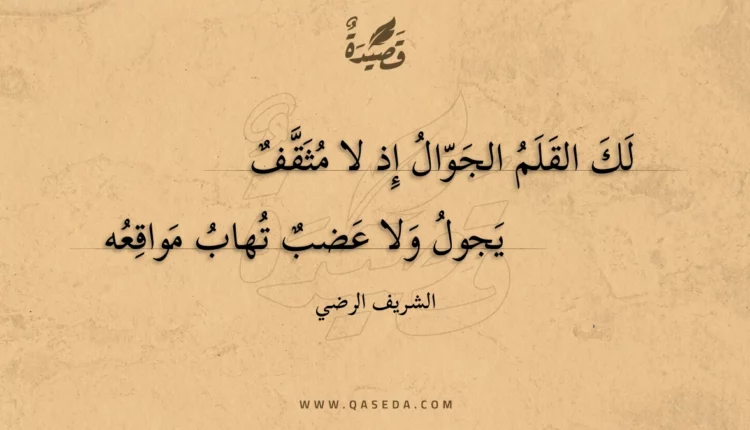 قَصِيْدَةٌ
لَكَ القَلَمُ الجَوّالُ إِذ لا مُثَقَّفٌ
يَجولُ وَلا عَضبٌ تُهابُ مَواقِعُه
الشريف الرضي
WWW.QASEDA.COM